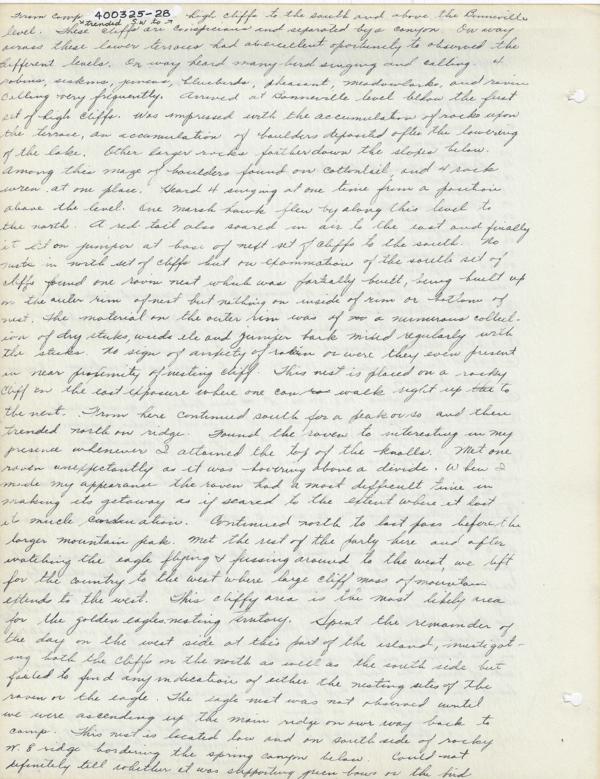 From camp 400325-2B high cliffs to the south and above the Bonneville
trended S.W. to
level. These cliffs are conspicuous and separated by a canyon. On way
across these lower terraces had abexcellent oportunity to observed the
different levels. On way heard many bird singing and calling. 4
robins, siskins, juncos, bluebirds, pheasant, meadowlarks, and raven
calling very frequently. Arrived at Bonneville level below the first
set of high cliffs. Was impressed with the accumulation of rocks upon
the terrace, an accumulation of boulders deposited after the lowering
of the lake. Other larger rocks farther down the slopes below.
Among this maze of boulders found on cottontail, and 4 rock
wren at one place. Heard 4 singing at one time from a position
above the level. One marsh hawk flew by along this level to
the north. A red tail also soared in air to the east and finally
it lit on juniper at base of next set of cliffs to the south. No
nests in north set of cliffs but on examination of the south set of
cliffs found one raven nest which was partially built, being built up
on the outer rim of nest but nothing on inside of rim or bottom of
nest. The material on the outer rim was of a numerous collect-
ion of dry sticks, weeds etc and juniper bark mixed regularly with
the sticks. No sign of anxiety of raven or were they even present
in near proximity of nesting cliff. This nest is placed on a rocky
cliff on the east exposure where one can walk right up to
the nest. From here continued south for a peak or so and there
trended north on ridge. Found the raven to interesting in my
presence whenever I attained the top of the knolls. Met one
raven unexpectantly as it was hovering above a divide. When I
made my appearance the raven had a most difficult time in
making its getaway as if scared to the extent where it lost
its much cordination. Continued north to last pass before the
larger mountain peak. Met the rest of the party here and after
watching the eagle flying & fussing around to the west, we left
for the country to the west where large cliff mass of mountain
extends to the west. This cliffy area is the most likely area
for the golden eagles nesting teritory. Spent the remainder of
the day on the west side at this part of the island, investigat-
ing both the cliffs on the north as well as the south side but
failed to find any indication of either the nesting sites of the
raven or the eagle. The eagle nest was not observed until
we were ascending up the main ridge on our way back to
camp. This nest is located low and on south side of rocky
W. & ridge bordering the spring canyon below. Could not
definitely tell whether it was supporting green bows or the bird